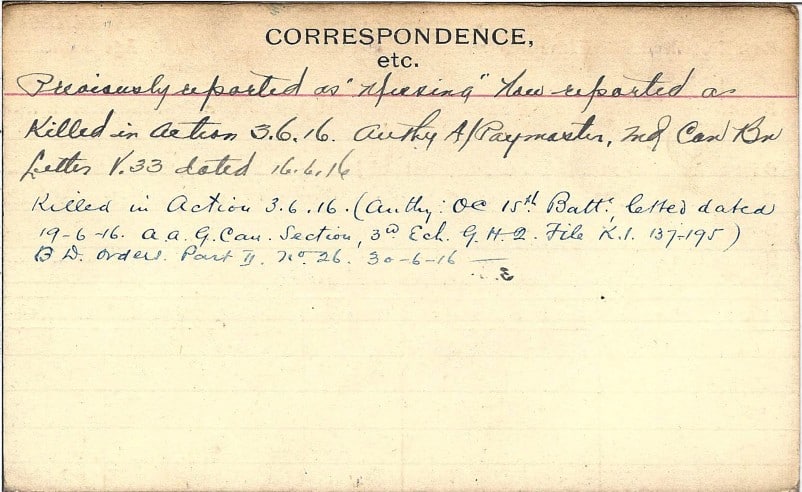 CORRESPONDENCE,
etc.
Previously reported as "Missing" Now reported as
Killed in Action 3.6.16. Authy A/Paymaster, Can Bn
Letter V.33 dated 16.6.16
Killed in Action 3.6.16. (Authy: OC 15th Batt., letter dated
19-6-16. A.A.G. Can. Section, 3rd Ech. G.H.Q. File K.1. 137-195)
B D. Orders. Part II. No. 26. 30-6-16 —